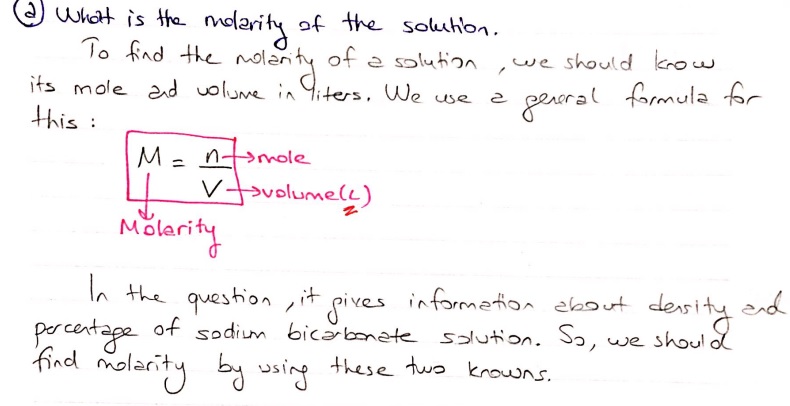 a) What is the molarity of the solution.
To find the molarity of a solution, we should know
its mole and volume in liters. We use a general formula for
this :
M = n → mole
V → volume(L)
Molarity
In the question, it gives information about density and
percentage of sodium bicarbonate solution. So, we should
find molarity by using these two knowns.